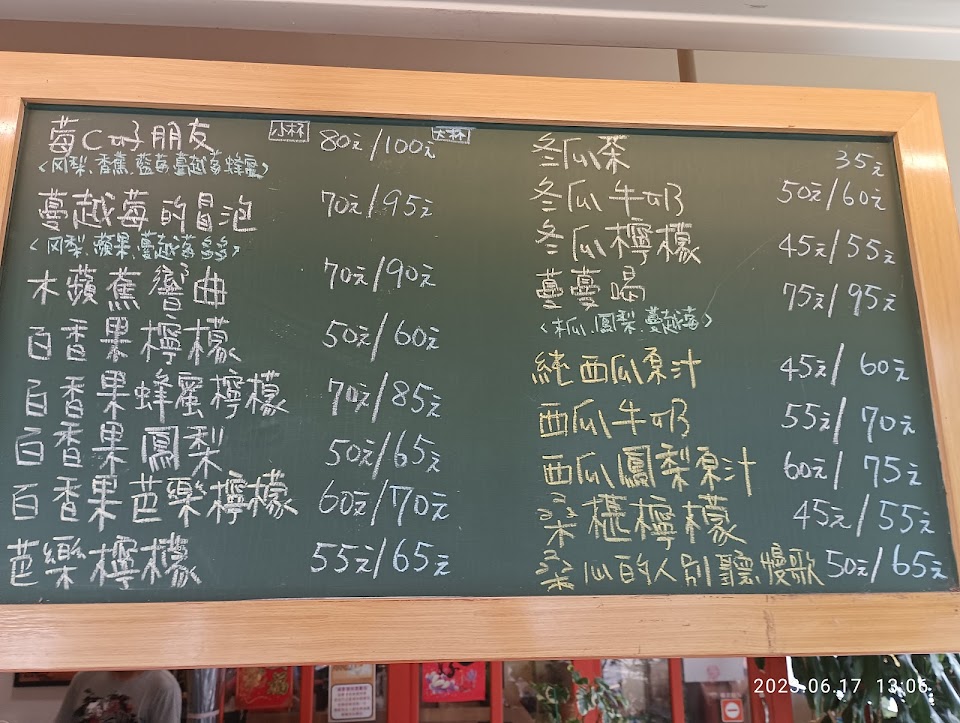 莓C的好朋友 小杯 80元/100元 大杯
<凤梨、香蕉、藍莓、蔓越莓、蜂蜜>
蔓越莓的冒泡 70元/95元
<凤梨、蘋果、蔓越莓、多多>
木蘋蕉響曲 70元/90元
百香果檸檬 50元/60元
百香果蜂蜜檸檬 70元/85元
百香果鳳梨 50元/65元
百香果芭樂檸檬 60元/70元
芭樂檸檬 55元/65元
冬瓜茶 35元
冬瓜牛奶 50元/60元
冬瓜檸檬 45元/55元
蔓蔓喝 75元/95元
<木瓜、鳳梨、蔓越莓>
純西瓜原汁 45元/60元
西瓜牛奶 55元/70元
西瓜鳳梨原汁 60元/75元
桑椹檸檬 45元/55元
桑心的人別聽慢歌 50元/65元
2023.06.17 13:06